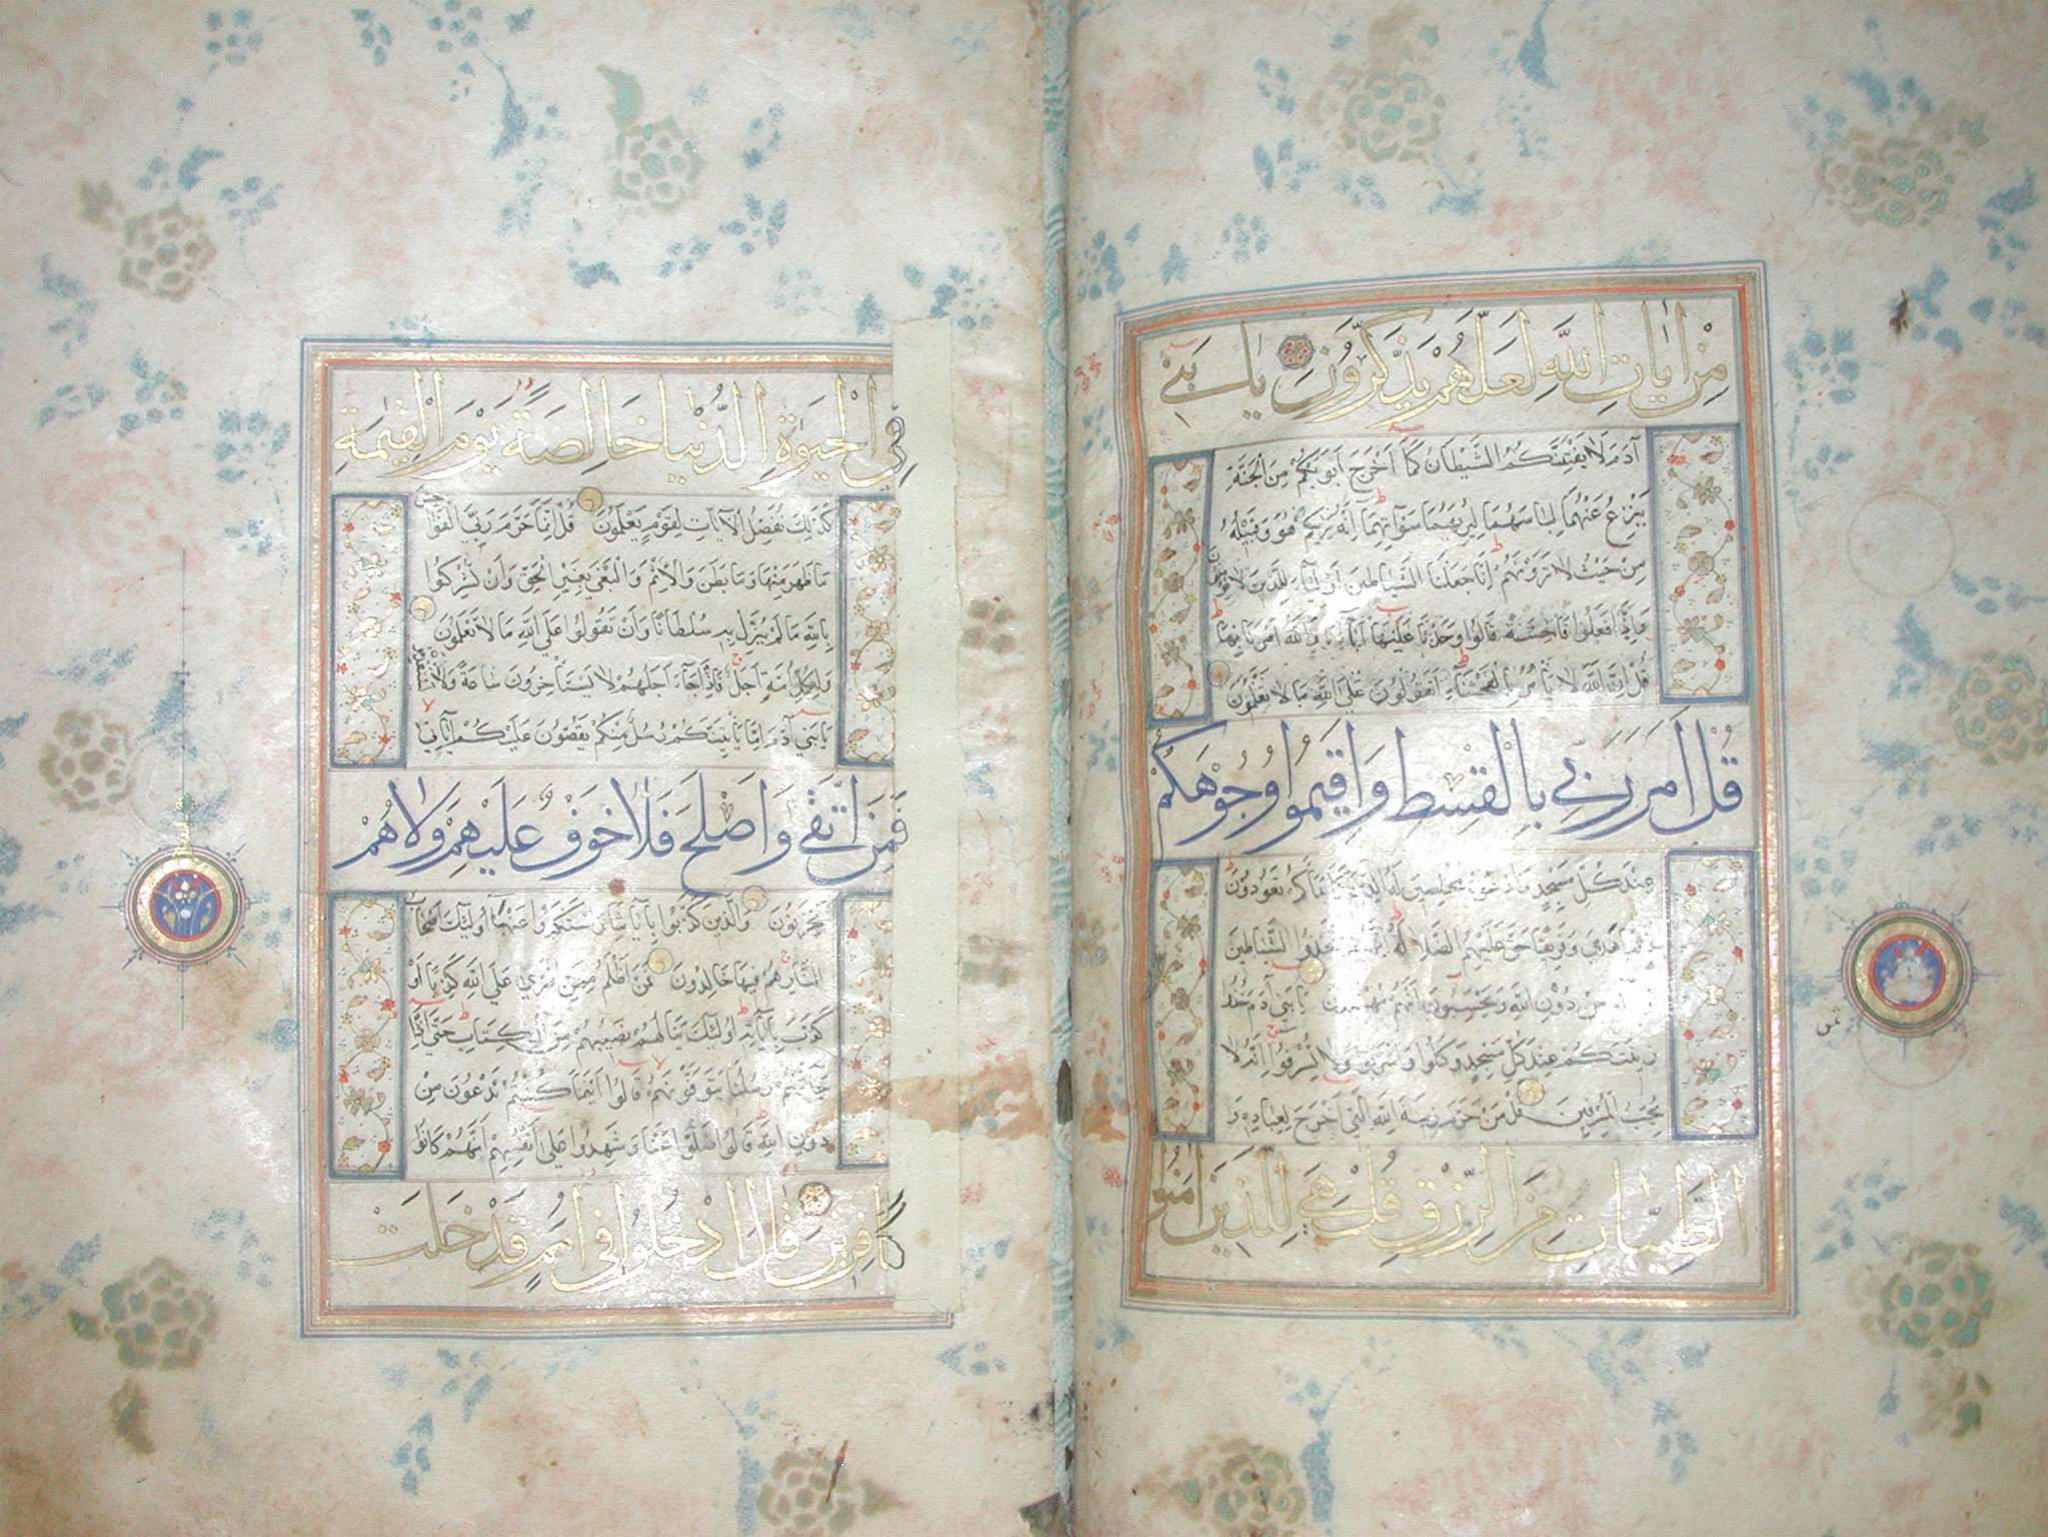 من ايات الله لعلهم يذكرون يا بني
آدم لا يفتننكم الشيطان كما اخرج ابويكم من الجنة
ينزع عنهما لباسهما ليريهما سوآتهما انه يريكم هو وقبيله
من حيث لا ترونهم انا جعلنا الشياطين اولياء للذين لا يؤمنون
واذا فعلوا فاحشة قالوا وجدنا عليها آباءنا والله امرنا بها
قل ان الله لا يأمر بالفحشاء اتقولون على الله ما لا تعلمون
قل امر ربي بالقسط واقيموا وجوهكم
عند كل مسجد وادعوه مخلصين له الدين كما بدأكم تعودون
هدى وفريقا حق عليهم الضلالة انهم اتخذوا الشياطين
من دون الله ويحسبون انهم مهتدون يا بني آدم خذوا
زينتكم عند كل مسجد وكلوا واشربوا ولا تسرفوا انه لا
يحب المسرفين قل من حرم زينة الله التي اخرج لعباده و
الطيبات من الرزق قل هي للذين امنوا
في الحيوة الدنيا خالصة يوم القيمة
كذلك نفصل الآيات لقوم يعلمون قل انما حرم ربي الفواحش
ما ظهر منها وما بطن والاثم والبغي بغير الحق وان تشركوا
بالله ما لم ينزل به سلطانا وان تقولوا على الله ما لا تعلمون
ولكل امة اجل فاذا جاء اجلهم لا يستأخرون ساعة ولا يستقدمون
يا بني آدم اما يأتينكم رسل منكم يقصون عليكم آياتي
فمن اتقى واصلح فلا خوف عليهم ولا هم
يحزنون والذين كذبوا بآياتنا واستكبروا عنها اولئك اصحاب
النار هم فيها خالدون فمن اظلم ممن افترى على الله كذبا او
كذب بآياته اولئك ينالهم نصيبهم من الكتاب حتى اذا
جاءتهم رسلنا يتوفونهم قالوا اينما كنتم تدعون من
دون الله قالوا ضلوا عنا وشهدوا على انفسهم انهم كانوا
كافرين قال ادخلوا في امم قد خلت